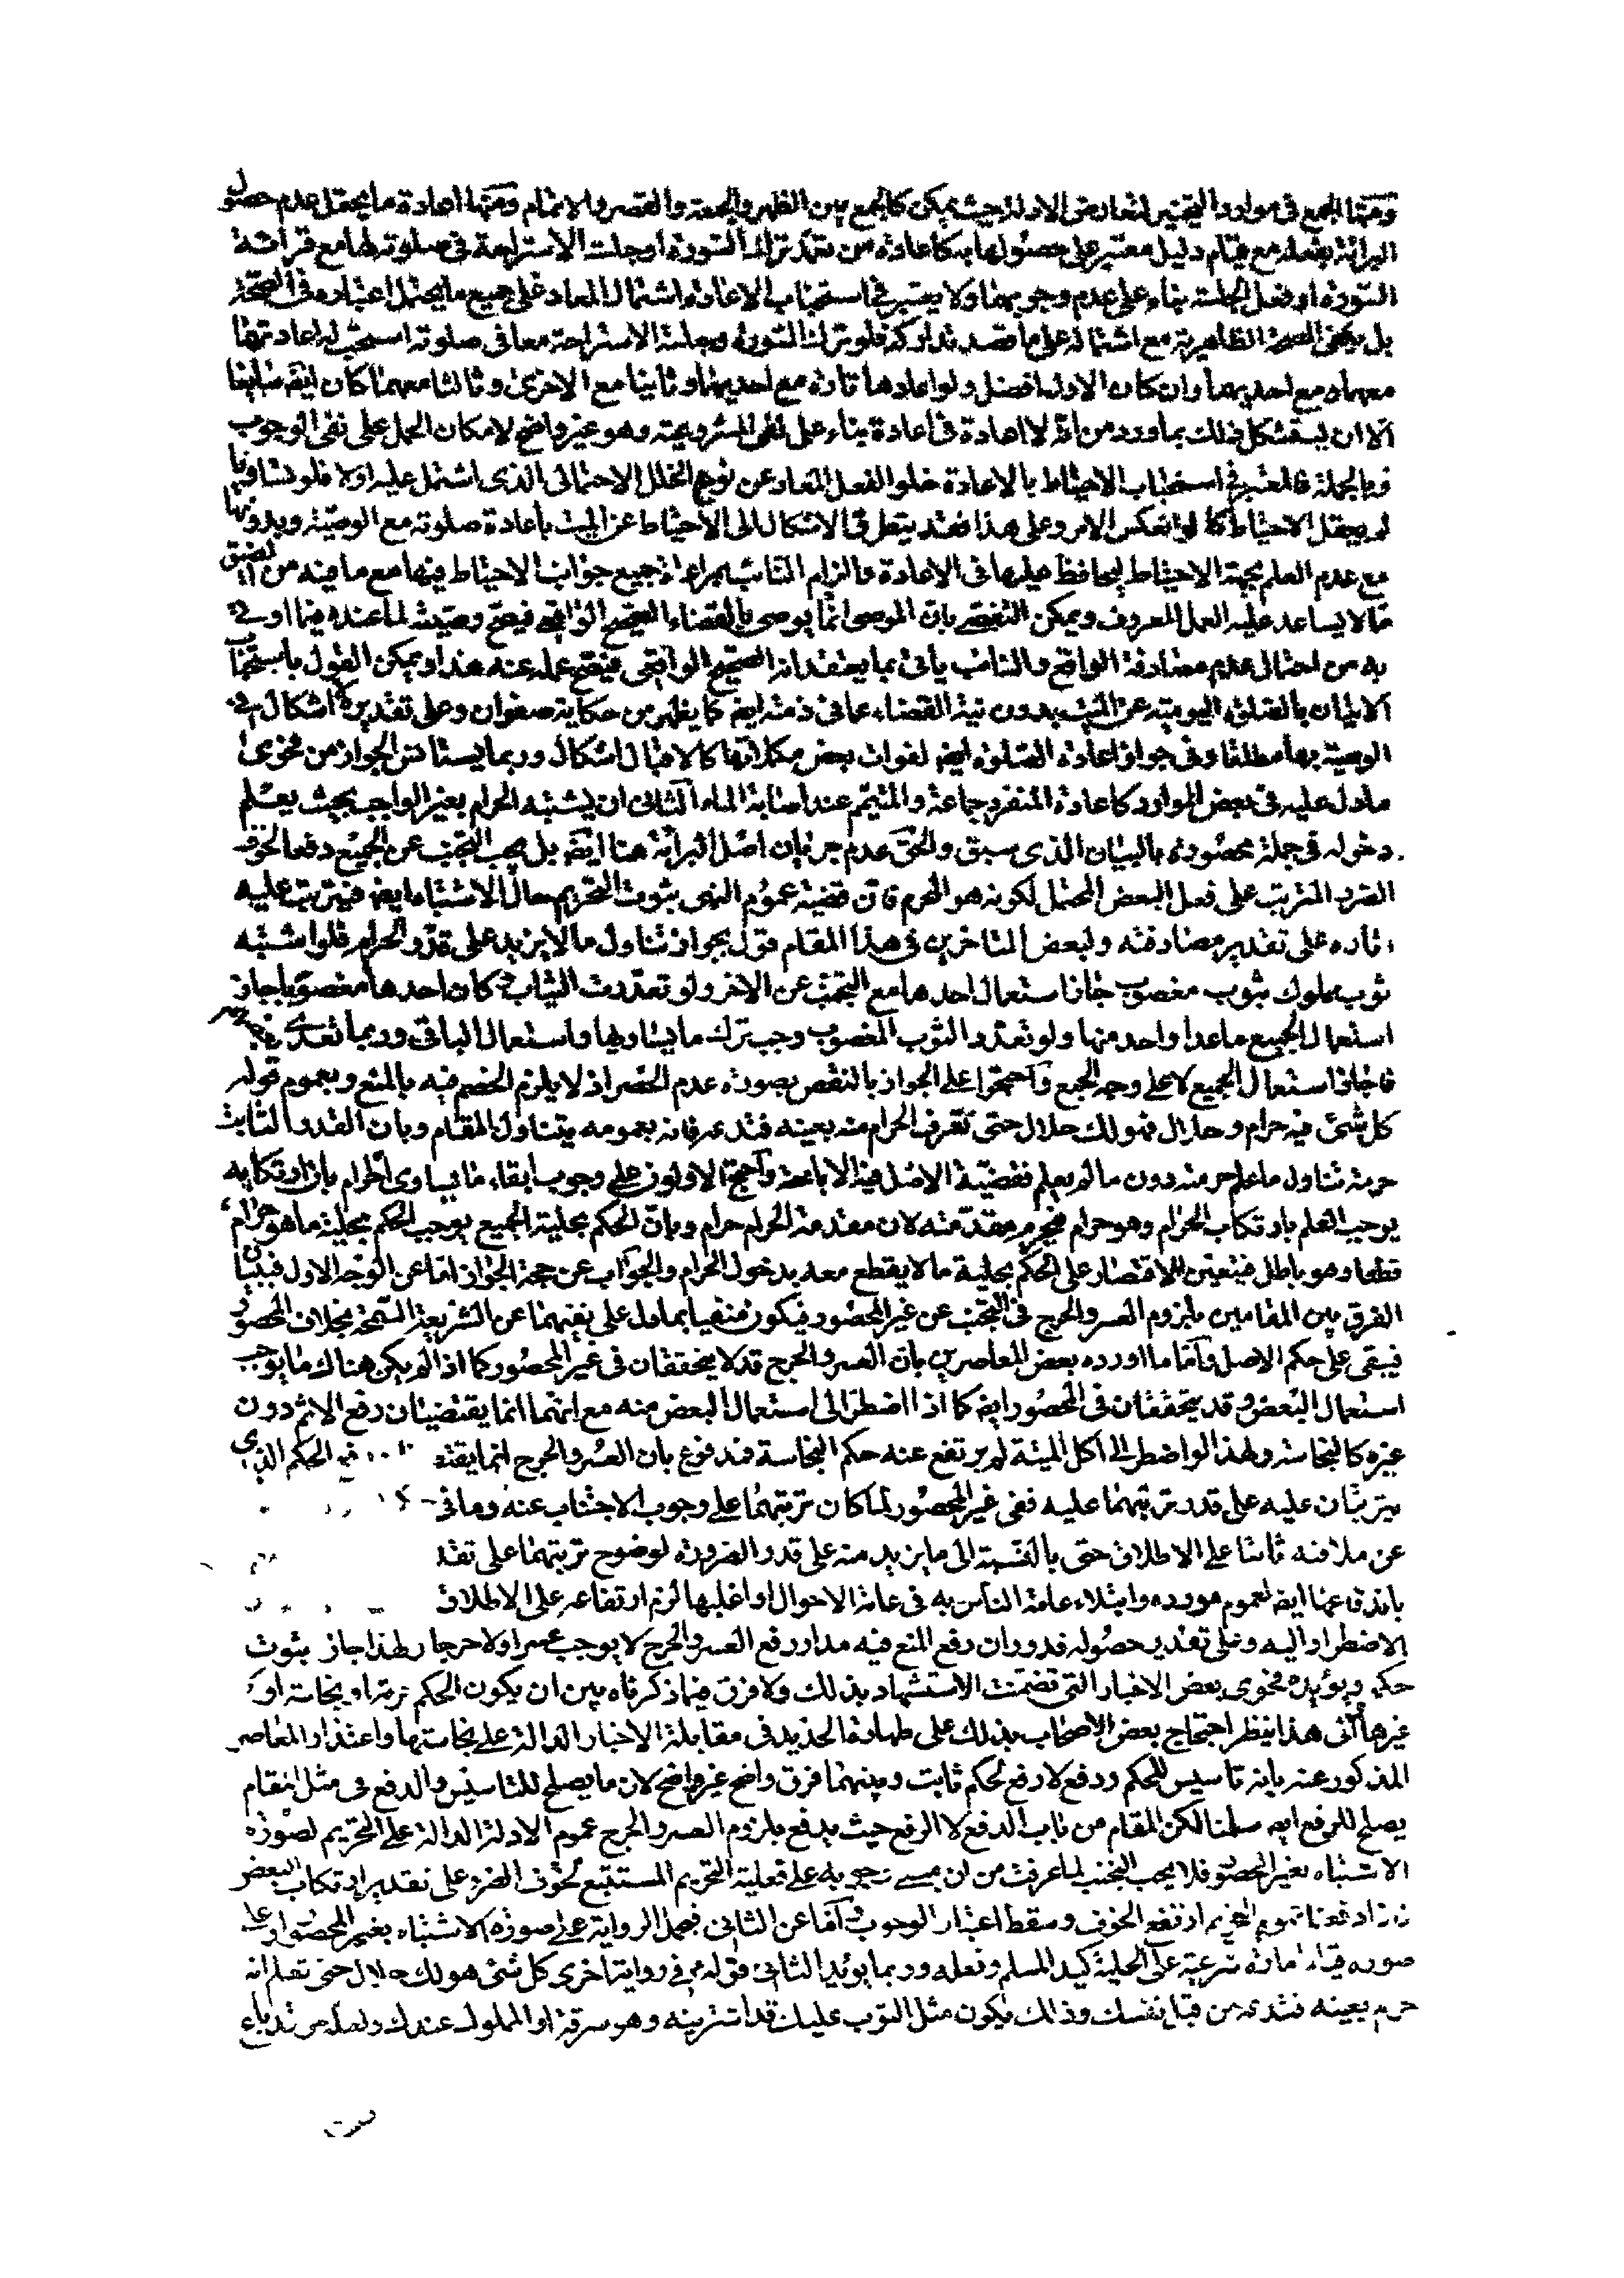 ومنها الجمع في موارد التخيير لتعارض الادلة حيث يمكن كالجمع بين الظهر والجمعة والقصر والاتمام ومنها اعادة ما يحتمل عدم حصول
البرائة بفعله مع قيام دليل معتبر على حصولها به كاعادة من تعمد ترك السورة او جلسة الاستراحة في صلوته لها مع قرائة
السورة او فعل الجلسة بناء على عدم وجوبهما ولا يعتبر في استحباب الاعادة اشتمال المعاد على جميع ما يحتمل اعتباره في الصحة
بل يكفي الصحة الظاهرية مع اشتماله على ما قصد تداركه فلو ترك السورة وجلسة الاستراحة معا في صلوته استحب له اعادتها
معهما ومع احديهما وان كان الاول افضل ولو اعادها تارة مع احديهما وثانيا مع الاخرى وثالثا معهما كان ايضا سايغا
الا ان يستشكل في ذلك بما ورد من انه لا اعادة في اعادة بناء على نفي المشروعية وهو غير واضح لامكان الحمل على نفي الوجوب
وبالجملة فالمعتبر في استحباب الاحتياط بالاعادة خلو الفعل المعاد عن نوع الخلل الاحتمالي الذي اشتمل عليه اولا فلو تساويا
لم يعقل الاحتياط كما لو انعكس الامر وعلى هذا فقد يتطرق الاشكال الى الاحتياط عن الميت باعادة صلوته مع الوصية وبدونها
مع عدم العلم بجهة الاحتياط ليحافظ عليها في الاعادة والزام النائب بمراعاة جميع جوانب الاحتياط فيها مع ما فيه من الضيق
مما لا يساعد عليه العمل المعروف ويمكن التفصي بان الموصي انما يوصي بالقضاء الصحيح الواقعي فيصح وصيته لما عنده فيما اوصى
به من احتمال عدم مصادفة الواقع والنائب يأتي بما يعتقد انه الصحيح الواقعي فيصح عمله عنه هذا ويمكن القول باستحباب
الاتيان بالصلوة اليومية عن الميت بدون نية القضاء عما في ذمته ايضا كما يظهر من حكاية صفوان وعلى تقديره لا اشكال في
الوصية بها مطلقا وفي جواز اعادة الصلوة ايضا لفوات بعض مكملاتها كالاقبال اشكال وربما يستانس الجواز من فحوى
ما دل عليه في بعض الموارد كاعادة المنفرد جماعة والمتيمم عند اصابة الماء الثاني ان يشتبه الحرام بغير الواجب بحيث يعلم
دخوله في جملة محصورة بالبيان الذي سبق والحق عدم جريان اصل البرائة هنا ايضا بل يجب التجنب عن الجميع دفعا لخوف
الضرر المترتب على فعل البعض المحتمل لكونه هو المحرم فان قضية عموم النهي ثبوت التحريم حال الاشتباه ايضا فيترتب عليه
اثاره على تقدير مصادفته ولبعض المتاخرين في هذا المقام قول بجواز تناول ما لا يزيد على قدر الحرام فلو اشتبه
ثوب مملوك بثوب مغصوب جاز استعمال احدهما مع التجنب عن الاخر ولو تعددت الثياب وكان احدها مغصوبا جاز
استعمال الجميع ما عدا واحد منها ولو تعدد الثوب المغصوب وجب ترك ما يساويها واستعمال الباقي وربما تعدى
فاجاز استعمال الجميع لا على وجه الجمع واحتجوا على الجواز بالنقض بصورة عدم الحصر اذ لا يلزم الخصم فيه بالمنع وبعموم قوله
كل شئ فيه حرام وحلال فهو لك حلال حتى تعرف الحرام منه بعينه فتدعه فانه بعمومه يتناول المقام وبان القدر الثابت
حرمة تناول ما علم حرمته دون ما لم يعلم فقضية الاصل فيه الاباحة واحتج الاولون على وجوب ابقاء ما يساوى الحرام بان ارتكابه
يوجب العلم بارتكاب الحرام وهو حرام فيحرم مقدمته لان مقدمة الحرام حرام وبان الحكم بحلية الجميع يوجب الحكم بحلية ما هو حرام
قطعا وهو باطل فيتعين للاقتصار على الحكم بحلية ما لا يقطع معه بدخول الحرام والجواب عن حجة الجواز اما عن الوجه الاول فببيان
الفرق بين المقامين بلزوم العسر والحرج في التجنب عن غير المحصور فيكون منفيا بما دل على نفيهما عن الشريعة السمحة بخلاف المحصور
فيبقى على حكم الاصل واما ما اورده بعض المعاصرين بان العسر والحرج قد لا يتحققان في غير المحصور كما اذا لم يكن هناك ما يوجب
استعمال البعض وقد يتحققان في المحصور ايضا كما اذا اضطر الى استعمال البعض منه مع انهما انما يقتضيان رفع الاثم دون
غيره كالنجاسة ولهذا لو اضطر الى اكل الميتة لم يرتفع عنه حكم النجاسة فمدفوع بان العسر والحرج انما الحكم الذي
يترتبان عليه على قدر ترتبهما عليه ففي غير المحصور لما كان ترتبهما على وجوب الاجتناب عنه وما في
عن ملاقيه ثابتا على الاطلاق حتى بالنسبة الى ما يزيد منه على قدر الضرورة لوضوح ترتبهما على
عنا ايضا لعموم مورده وابتلاء عامة الناس به في عامة الاحوال او اغلبها لزم ارتفاعه على الاطلاق
الاضطرار اليه وعلى تقدير حصوله فدوران رفع المنع فيه مدار رفع العسر والحرج لا يوجب عسرا ولا حرجا ولهذا جاز ثبوت
حكمه ويؤيده فحوى بعض الاخبار التي تضمنت الاستشهاد بذلك ولا فرق فيما ذكرناه بين ان يكون الحكم حرمة او نجاسة او
غيرها الى هذا ينظر احتجاج بعض الاصحاب بذلك على طهارة الحديد في مقابلة الاخبار الدالة على نجاستها واعتذار المعاصر
المذكور عنه بانه تاسيس للحكم ودفع لا رفع لحكم ثابت وبينهما فرق واضح غير واضح لان ما يصلح للتاسيس والدفع في مثل المقام
يصلح للرفع ايضا سلمنا لكن المقام من باب الدفع لا الرفع حيث يدفع بلزوم العسر والحرج عموم الادلة الدالة على التحريم لصورة
الاشتباه بغير المحصور فلا يجب التجنب لما عرفت من ان على فعلية التحريم المستتبع لخوف الضرر على تقدير ارتكاب البعض
دفعنا عموم التحريم ارتفع الخوف وسقط اعتبار الوجوب واما عن الثاني فبحمل الرواية على صورة الاشتباه بغير المحصور او على
صورة قيام امارة شرعية على الحلية كيد المسلم وفعله وربما يؤيد الثاني قوله في رواية اخرى كل شئ هو لك حلال حتى تعلم انه
حرام بعينه فتدعه من قبل نفسك وذلك يكون مثل الثوب عليك قد اشتريته وهو سرقة او المملوك عندك ولعله حر قد باع